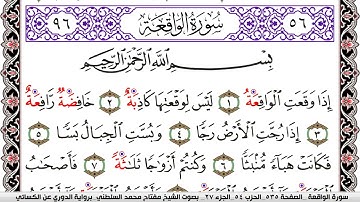 ٥٦ سُورَةُ الوَاقِعَةِ ٩٦
بِسْمِ اللَّهِ الرَّحْمَٰنِ الرَّحِيمِ
إِذَا وَقَعَتِ الْوَاقِعَةُ ١ لَيْسَ لِوَقْعَتِهَا كَاذِبَةٌ ٢ خَافِضَةٌ رَّافِعَةٌ
٣ إِذَا رُجَّتِ الْأَرْضُ رَجًّا ٤ وَبُسَّتِ الْجِبَالُ بَسًّا ٥
فَكَانَتْ هَبَاءً مُّنۢبَثًّا ٦ وَكُنتُمْ أَزْوَاجًا ثَلَاثَةً ٧ فَأَصْحَابُ
سورة الواقعة _ الصفحة ٥٣٥ _ الحزب ٥٤ _ الجزء ٢٧ _ بصوت الشيخ مفتاح محمد السلطني _ برواية الدوري عن الكسائي